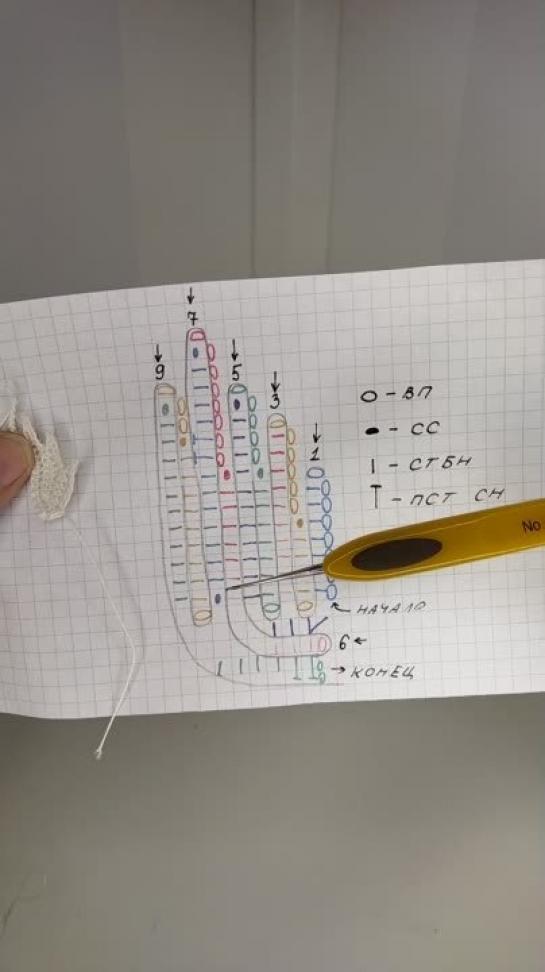 7
9
5
3
1
O - ВП
● - СС
I - СТБН
T - ПСТ СН
No
НАЧАЛО
6
КОНЕЦ